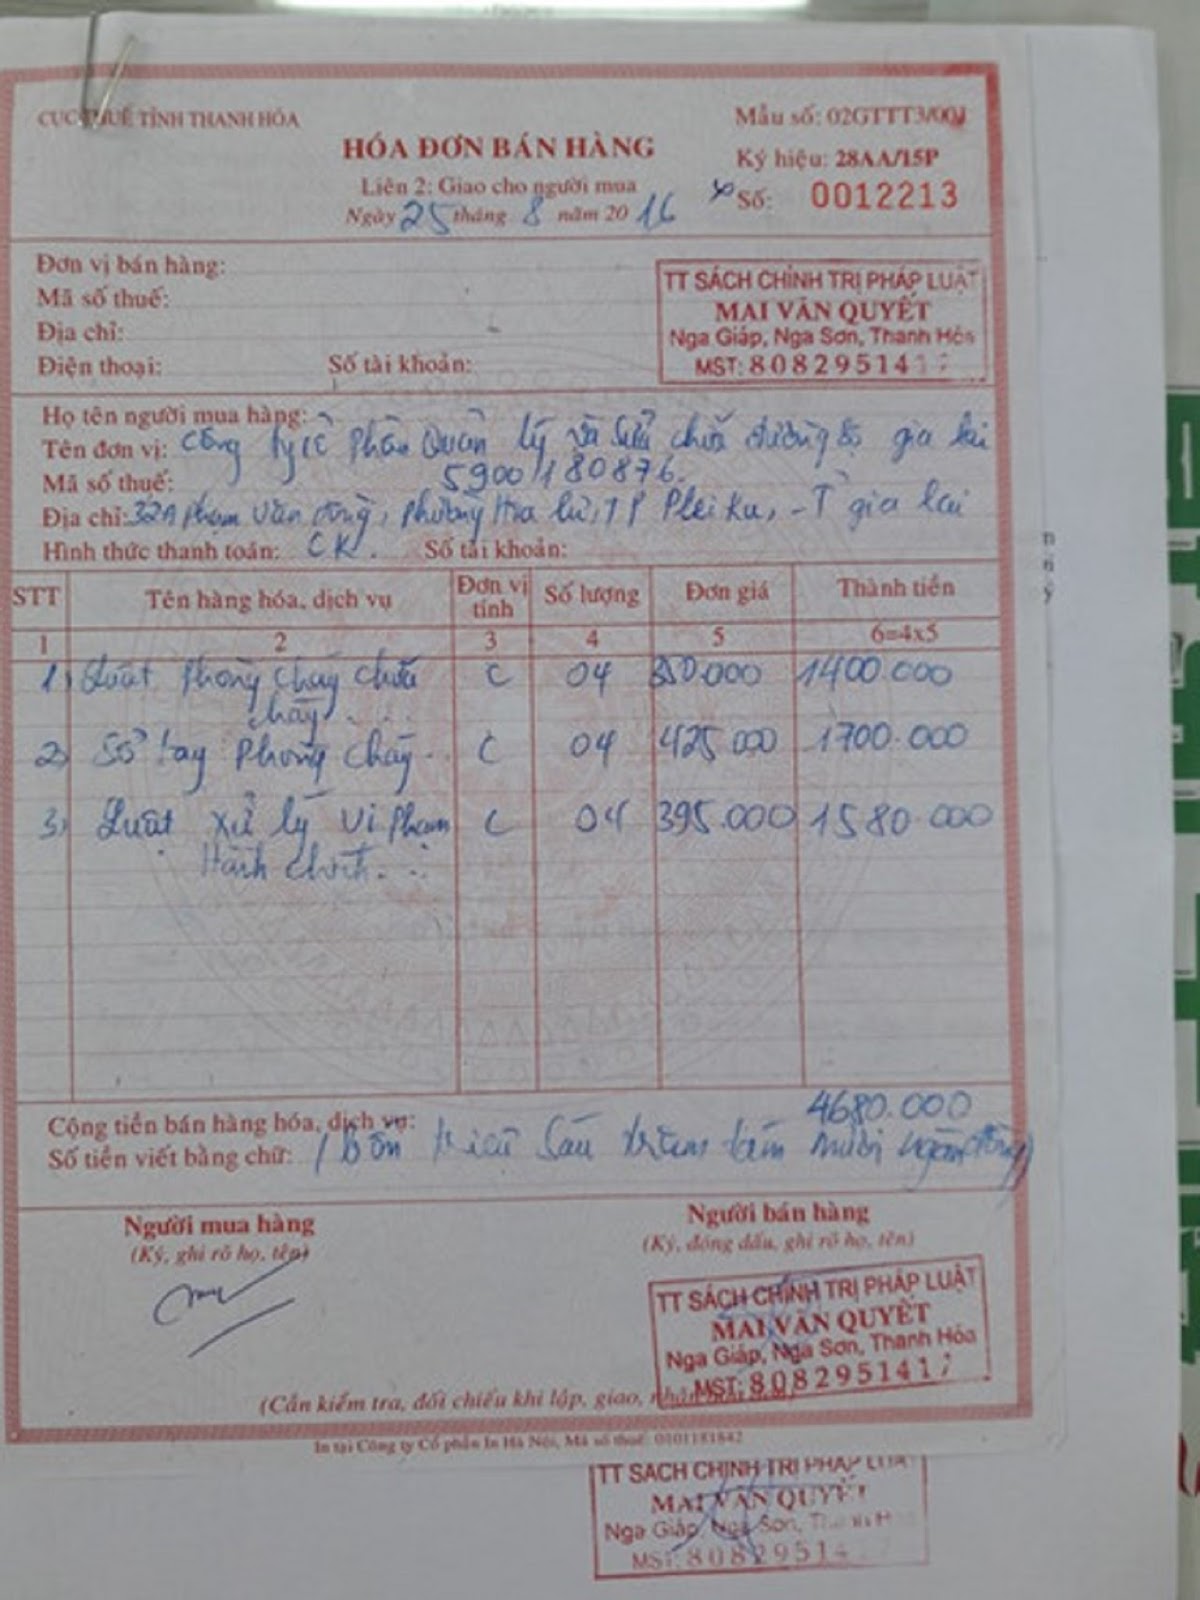 CỤC THUẾ TỈNH THANH HÓA
Mẫu số: 02GTTT3/001
HÓA ĐƠN BÁN HÀNG
Ký hiệu: 28AA/15P
Liên 2: Giao cho người mua
Số: 0012213
Ngày 25 tháng 8 năm 2016
Đơn vị bán hàng:
Mã số thuế:
Địa chỉ:
Điện thoại: Số tài khoản:
TT SÁCH CHÍNH TRỊ PHÁP LUẬT
MAI VĂN QUYẾT
Nga Giáp, Nga Sơn, Thanh Hóa
MST: 808295141
Họ tên người mua hàng:
Tên đơn vị: Công ty cổ Phần Quản lý và Sửa chữa đường bộ gia lai
Mã số thuế: 5900180876.
Địa chỉ: 32A Phạm Văn đồng, phường Hoa lư, TP Pleiku, - T gia lai
Hình thức thanh toán: CK. Số tài khoản:
STT Tên hàng hóa, dịch vụ Đơn vị tính Số lượng Đơn giá Thành tiền
1 2 3 4 5 6=4x5
1) Luật Phòng cháy chữa C 04 350.000 1400.000
cháy . . .
2) Sổ tay Phòng cháy . . C 04 425.000 1700.000
3) Luật xử lý vi phạm C 04 395.000 1580.000
Hành chính. . .
Cộng tiền bán hàng hóa, dịch vụ: 4680.000
Số tiền viết bằng chữ: / bốn triệu Sáu trăm tám mười ngàn đồng)
Người mua hàng
(Ký, ghi rõ họ, tên)
Người bán hàng
(Ký, đóng dấu, ghi rõ họ, tên)
TT SÁCH CHÍNH TRỊ PHÁP LUẬT
MAI VĂN QUYẾT
Nga Giáp, Nga Sơn, Thanh Hóa
MST: 808295141
(Cần kiểm tra, đối chiếu khi lập, giao,
In tại Công ty Cổ phần In Hà Nội, Mã số thuế: 0101181842
TT SÁCH CHÍNH TRỊ PHÁP LUẬT
MAI VĂN QUYẾT
Nga Giáp, Nga Sơn,
MST: 80829514